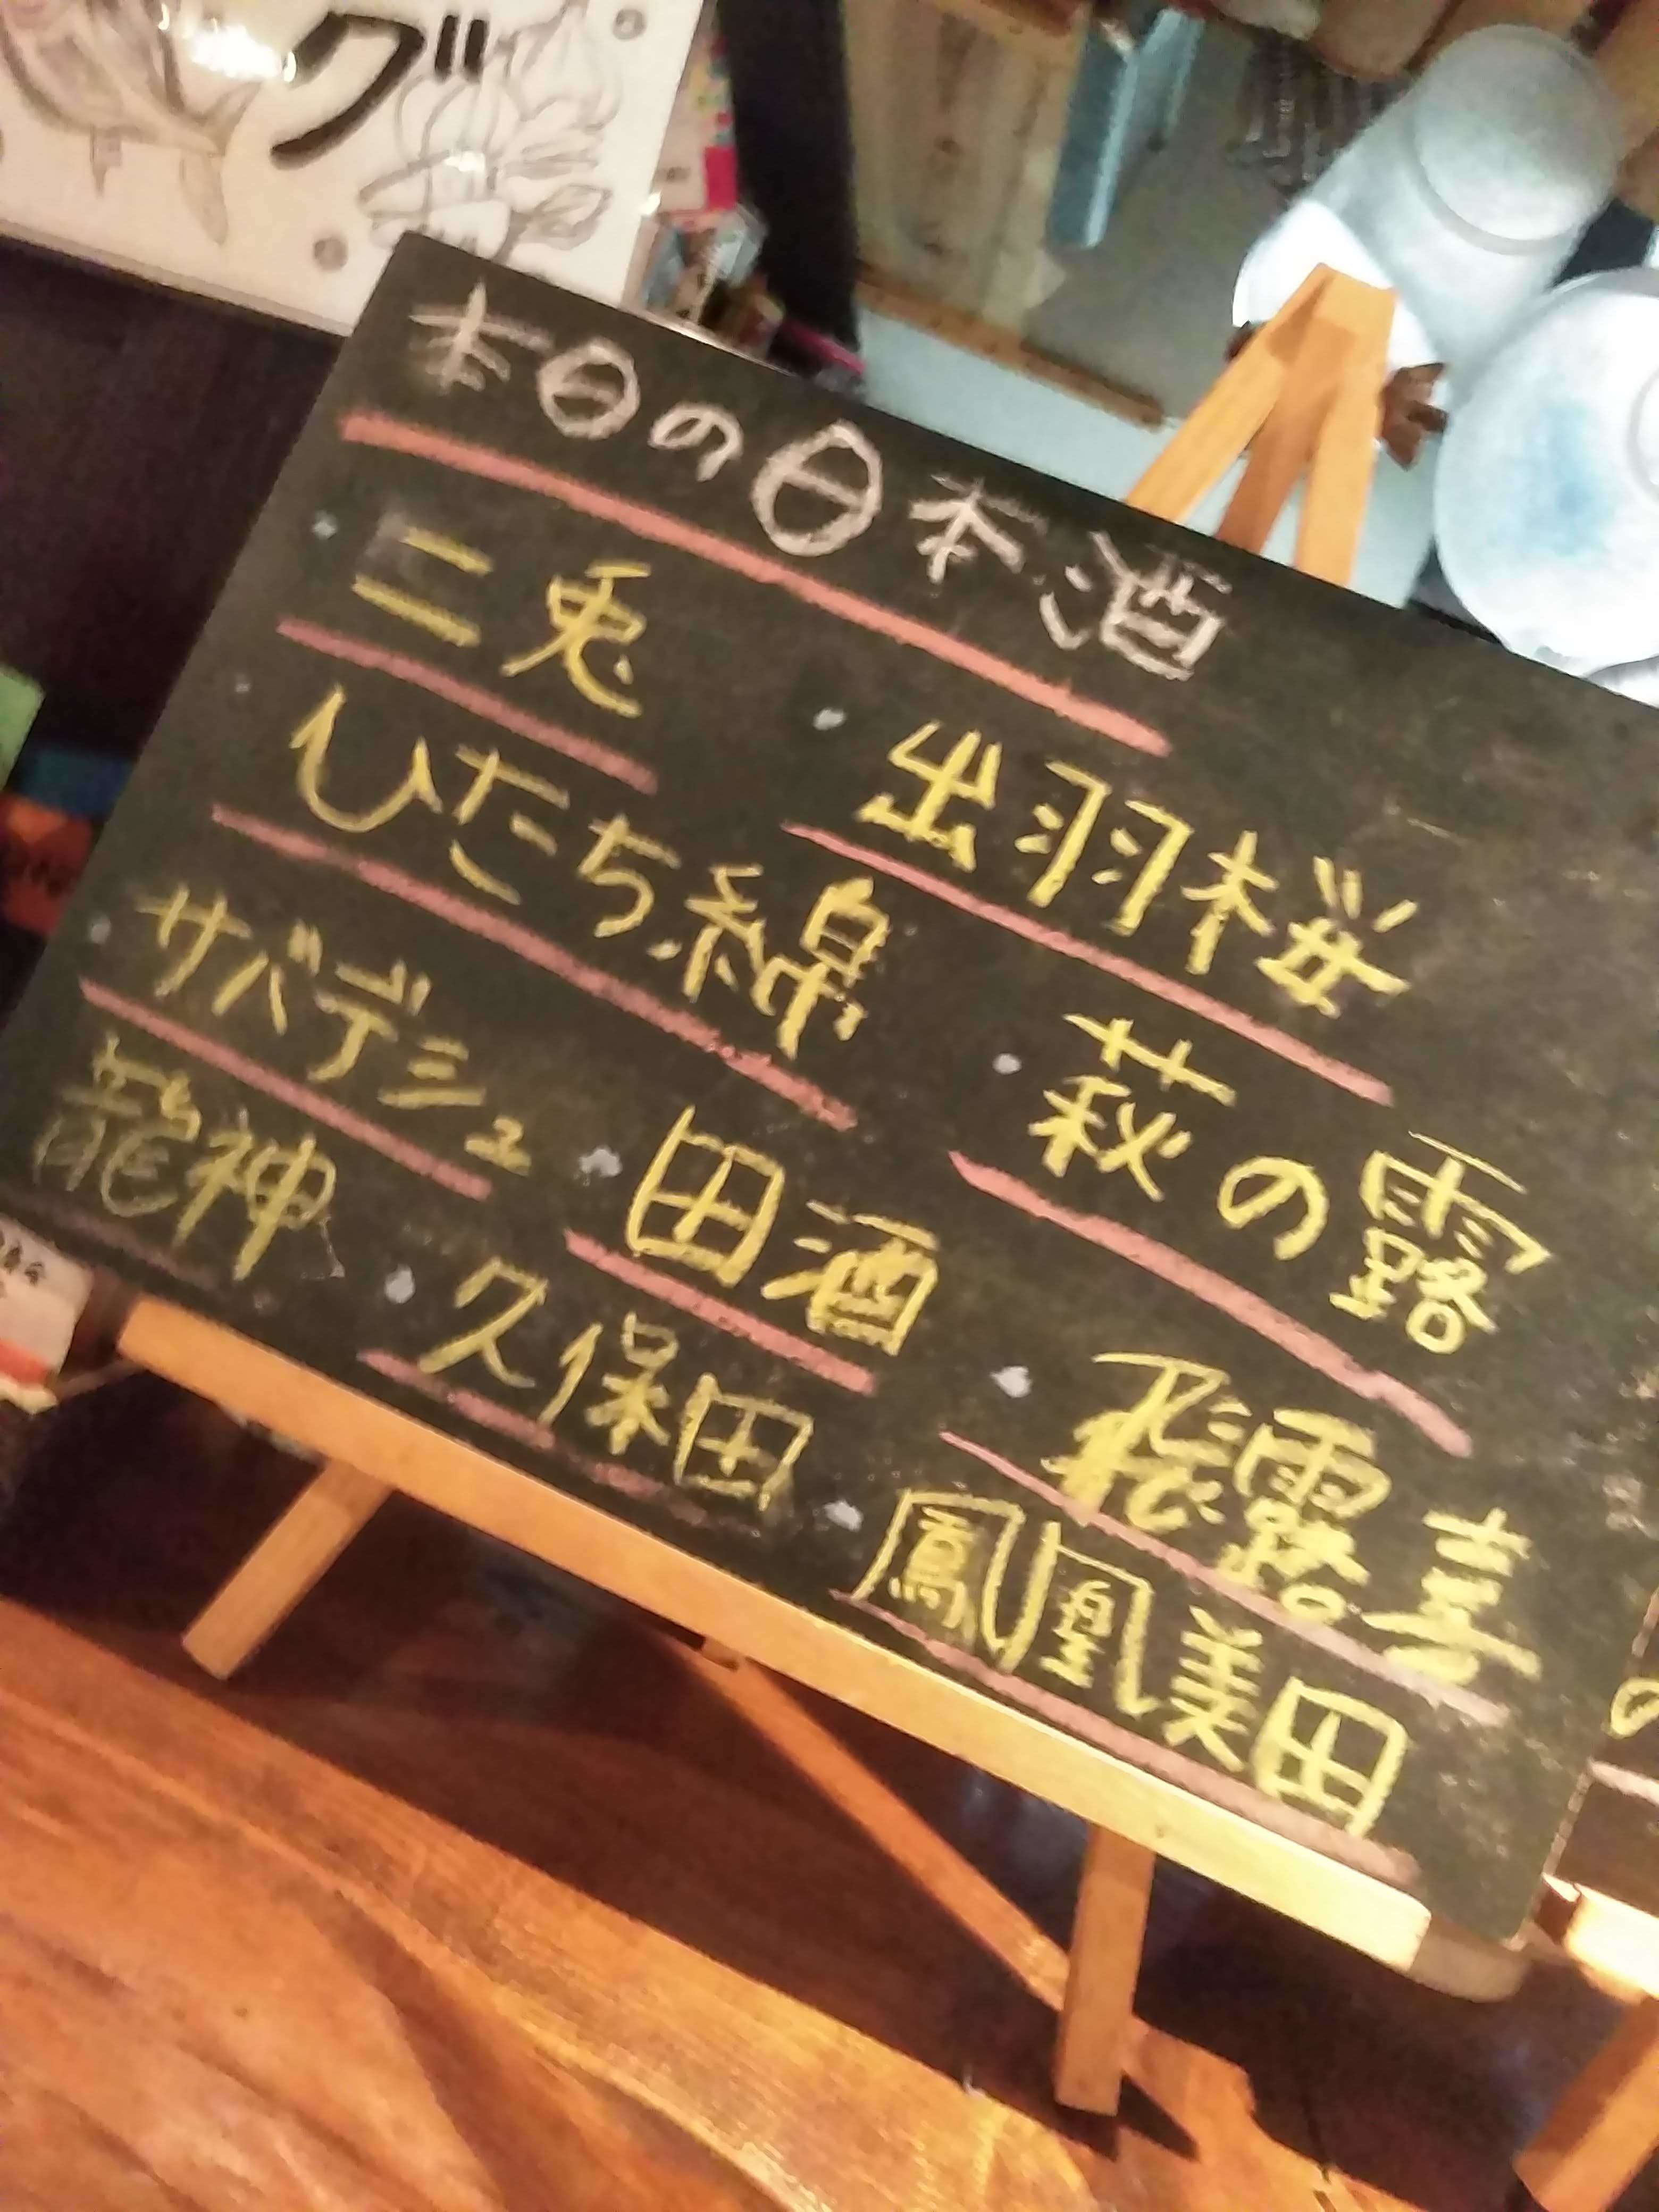 グ
本日の日本酒
・二兎
・出羽桜
・ひたち錦
・萩の露
・サバデシュ
・田酒
・飛露喜
龍神
・久保田
・鳳凰美田
の